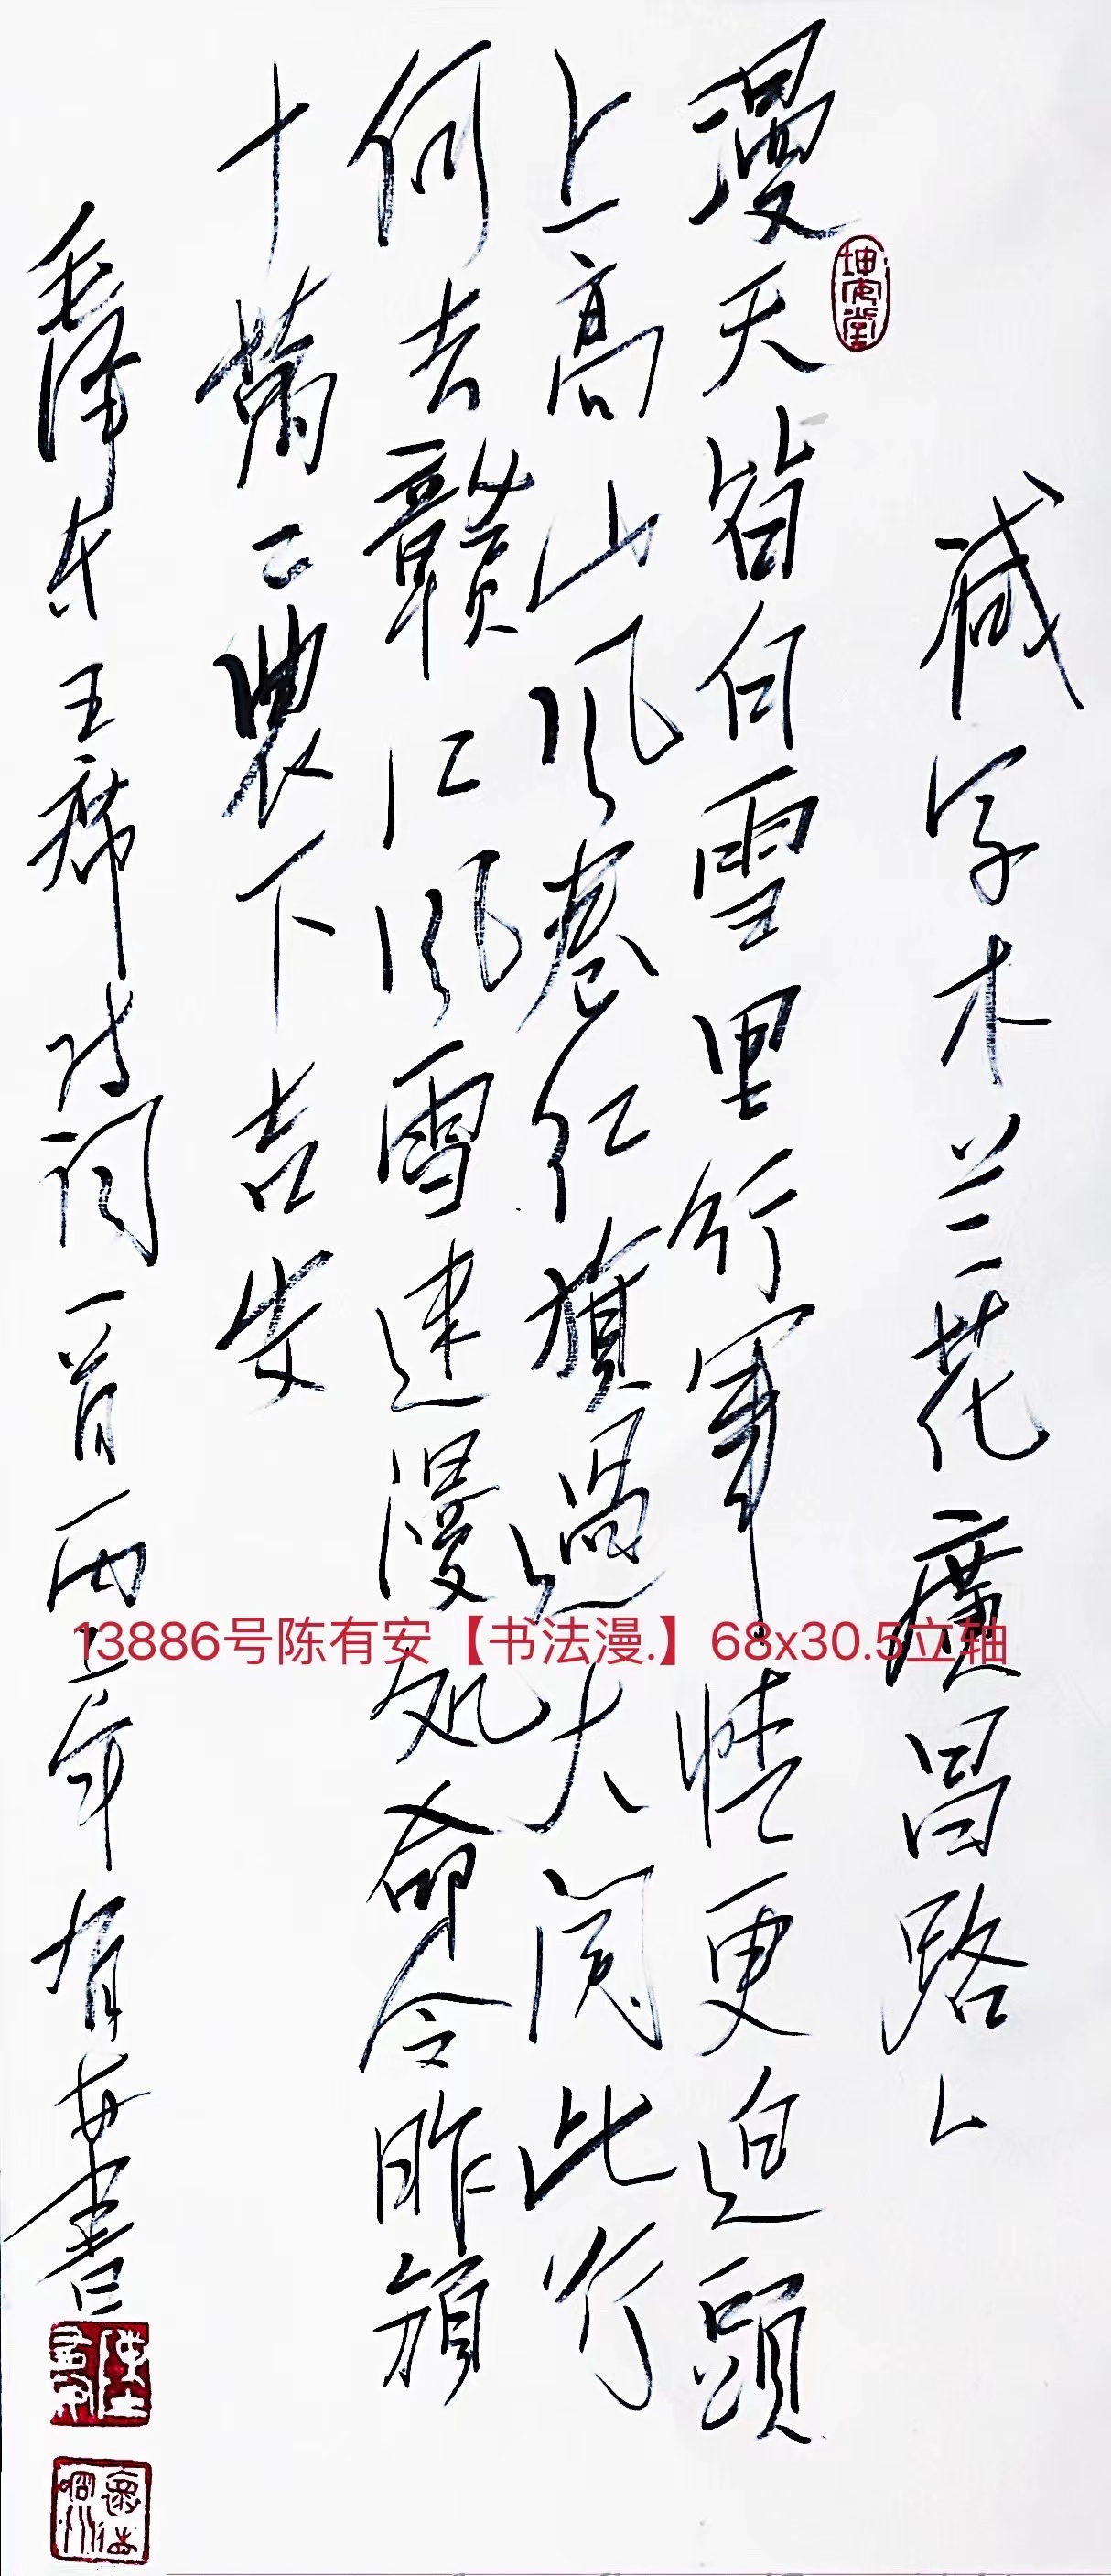 减字木兰花 廣昌路
漫天皆白雪里行军情更迫頭
上高山风卷红旗過大关此行
何去赣江风雪迷漫处命令昨颁
十萬工農下吉安
毛泽东主席诗词一首丙午年有安書
坤安堂
13886号陈有安【书法漫.】68x30.5立轴